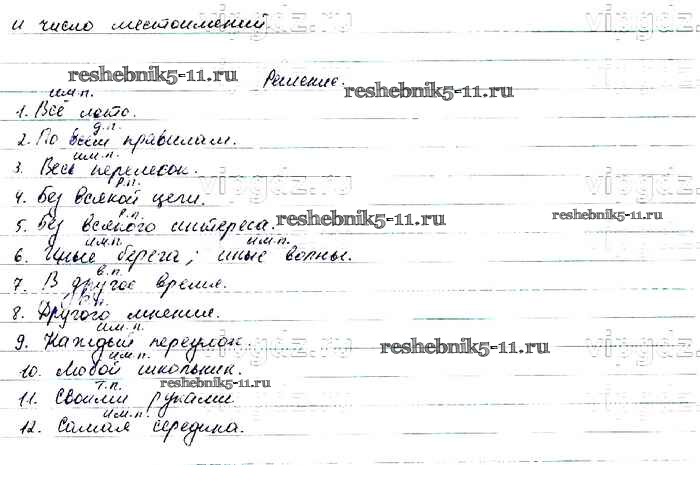 и число местоимений
vipgdz.ru
vipgdz.ru
reshebnik5-11.ru
Решение.
reshebnik5-11.ru
им.п.
1. Всё лето.
д.п.
2. По всем правилам.
им.п.
3. Весь перелесок.
vipgdz.ru
vipgdz.ru
р.п.
4. Без всякой цели.
р.п.
5. Без всякого интереса.
reshebnik5-11.ru
reshebnik5-11.ru
им.п. им.п.
6. Иные берега, иные волны.
в.п.
7. В другое время.
8. Другого мнения.
им.п.
9. Каждый переулок.
reshebnik5-11.ru
vipgdz.ru
vipgdz.ru
им.п.
10. Любой школьник.
reshebnik5-11.ru
т.п.
11. Своими руками
им.п.
12. Самая середина.